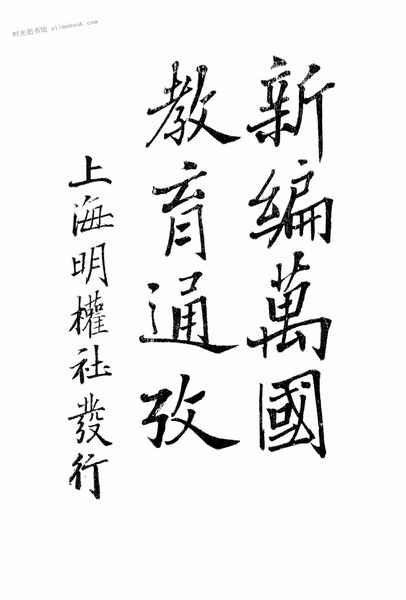 新編萬國
教育通攷
上海明權社發行
时光图书馆 alimebook.com